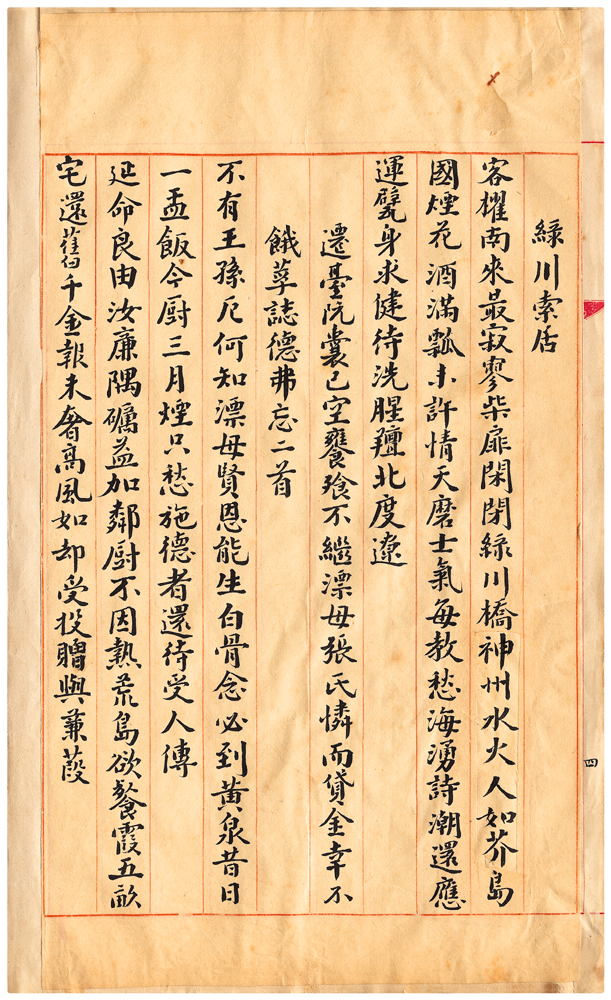 綠川索居
客櫂南來最寂寥柴扉閑閉綠川橋神州水火人如芥島
國煙花酒滿瓢未許情天磨士氣每教愁海湧詩潮還應
運甓身求健待洗腥羶北度遼
遷臺阮囊已空饔飧不繼漂母張氏憐而貸金幸不
餓莩誌德弗忘二首
不有王孫厄何知漂母賢恩能生白骨念必到黃泉昔日
一盂飯今廚三月煙只愁施德者還待受人傳
延命良由汝廉隅礪益加鄰廚不因熱荒島欲餐霞五畝
宅還舊千金報未奢高風如却受投贈與蒹葭
四